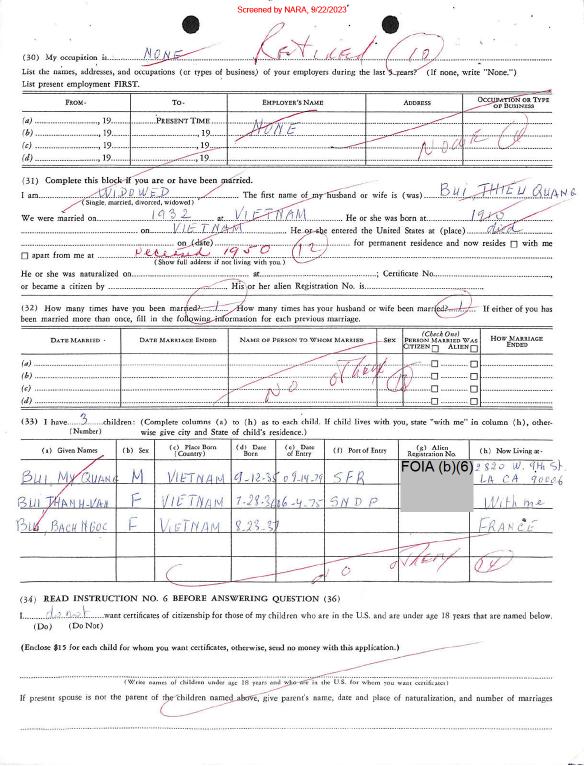 Screened by NARA, 9/22/2023
(30) My occupation is NONE Retired (10)
List the names, addresses, and occupations (or types of business) of your employers during the last 5 years? (If none, write "None.")
List present employment FIRST.
FROM- TO- EMPLOYER'S NAME ADDRESS OCCUPATION OR TYPE OF BUSINESS
(a) , 19 PRESENT TIME
(b) , 19 , 19 NONE
(c) , 19 , 19 NONE
(d) , 19 , 19
(31) Complete this block if you are or have been married.
I am WIDOWED The first name of my husband or wife is (was) BUI, THIEU QUANG
(Single, married, divorced, widowed)
We were married on 1932 at VIETNAM He or she was born at 1910
VIETNAM on He or she entered the United States at (place) died
on (date) for permanent residence and now resides ☐ with me
☐ apart from me at deceased 1950 (12)
(Show full address if not living with you.)
He or she was naturalized on at ; Certificate No.
or became a citizen by His or her alien Registration No. is
(32) How many times have you been married? 1 How many times has your husband or wife been married? 1 If either of you has
been married more than once, fill in the following information for each previous marriage.
DATE MARRIED DATE MARRIAGE ENDED NAME OF PERSON TO WHOM MARRIED SEX (Check One) PERSON MARRIED WAS CITIZEN ☐ ALIEN ☐ HOW MARRIAGE ENDED
(a) ☐ ☐
(b) ☐ ☐
(c) ☐ ☐
(d) ☐ ☐
NO other
(33) I have 3 children: (Complete columns (a) to (h) as to each child. If child lives with you, state "with me" in column (h), other-
(Number) wise give city and State of child's residence.)
(a) Given Names (b) Sex (c) Place Born (Country) (d) Date Born (e) Date of Entry (f) Port of Entry (g) Alien Registration No. (h) Now Living at-
BUI, MY QUANG M VIETNAM 9-12-35 09-14-79 SFR FOIA (b)(6) 2820 W. 9th St. LA CA 90006
BUI THANH-VAN F VIETNAM 7-28-36 6-4-75 SNDP With me
BUI, BACH NGOC F VIETNAM 8-23-37 FRANCE
NO other (14)
(34) READ INSTRUCTION NO. 6 BEFORE ANSWERING QUESTION (36)
I do not want certificates of citizenship for those of my children who are in the U.S. and are under age 18 years that are named below.
(Do) (Do Not)
(Enclose $15 for each child for whom you want certificates, otherwise, send no money with this application.)
(Write names of children under age 18 years and who are in the U.S. for whom you want certificates)
If present spouse is not the parent of the children named above, give parent's name, date and place of naturalization, and number of marriages